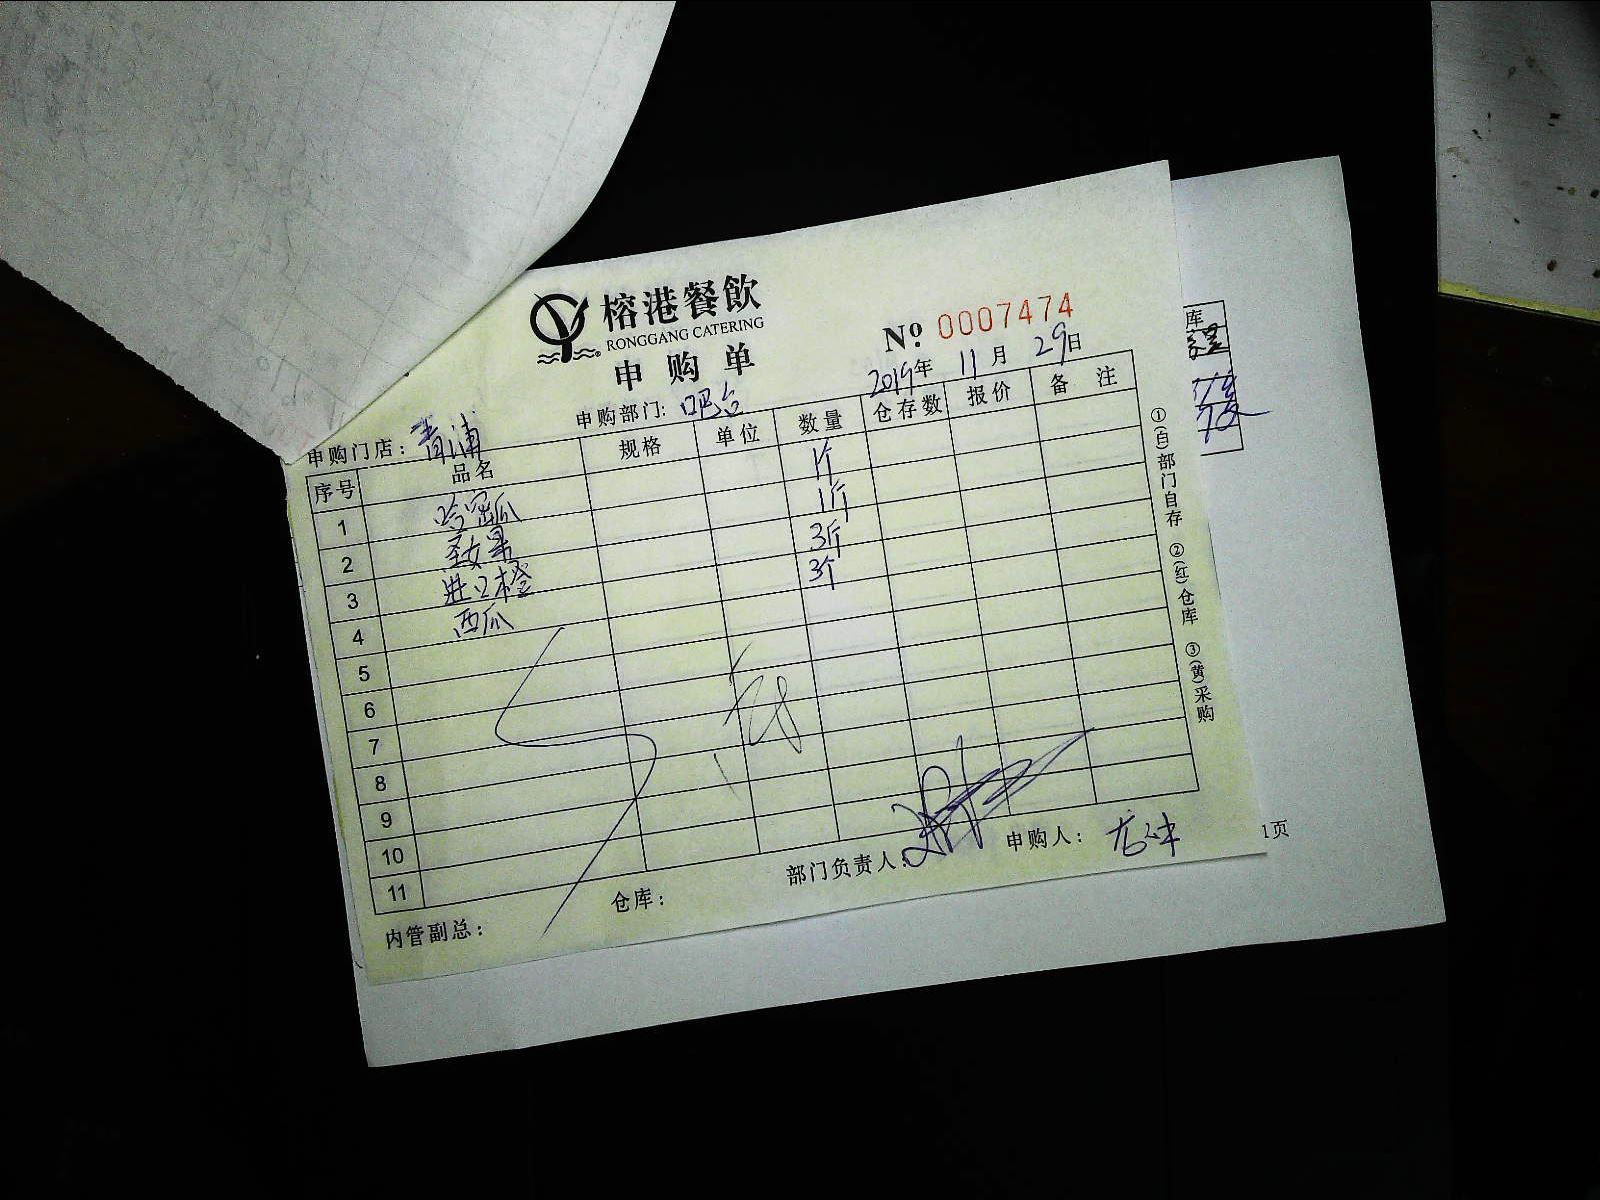 榕港餐飲
RONGGANG CATERING
申购单
№ 0007474
2019年 11月 29日
申购门店：青浦 申购部门：吧台
序号 品名 规格 单位 数量 仓存数 报价 备注
1 哈密瓜 1个
2 圣女果 1斤
3 进口橙 3斤
4 西瓜 3个
5
6
7
8
9
10
11
内管副总： 仓库： 部门负责人： 申购人：
①(白)部门自存 ②(红)仓库 ③(黄)采购
库
1页